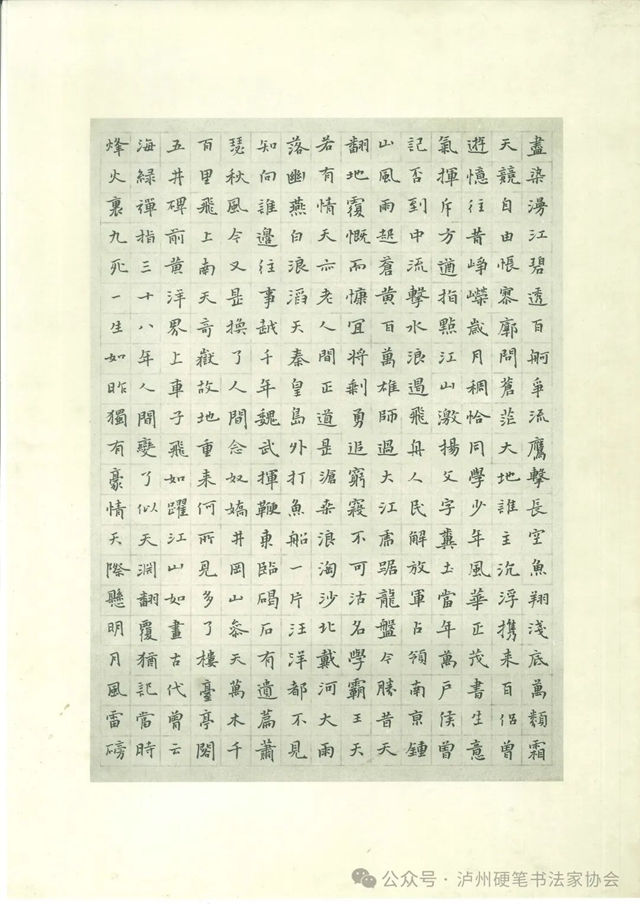 盡染漫江碧透百舸爭流鷹擊長空魚翔淺底萬類霜
天競自由悵寥廓問蒼茫大地誰主沉浮携来百侶曾
遊憶往昔崢嶸歲月稠恰同學少年風華正茂書生意
氣揮斥方遒指點江山激揚文字糞土當年萬戶侯曾
記否到中流擊水浪遏飛舟人民解放軍占領南京鍾
山風雨起蒼黃百萬雄師過大江虎踞龍盤今勝昔天
翻地覆慨而慷宜將剩勇追窮寇不可沽名學霸王天
若有情天亦老人間正道是滄桒浪淘沙北戴河大雨
落幽燕白浪滔天秦皇島外打魚船一片汪洋都不見
知向誰邊往事越千年魏武揮鞭東臨碣石有遺篇蕭
瑟秋風今又是換了人間念奴嬌井岡山參天萬木千
百里飛上南天奇嶽故地重来何所見多了樓臺亭閣
五井碑前黃洋界上車子飛如躍江山如畫古代曾云
海綠禪指三十八年人間變了似天淵翻覆猶記當時
烽火裏九死一生如昨獨有豪情天際懸明月風雷磅
公众号 · 泸州硬笔书法家协会